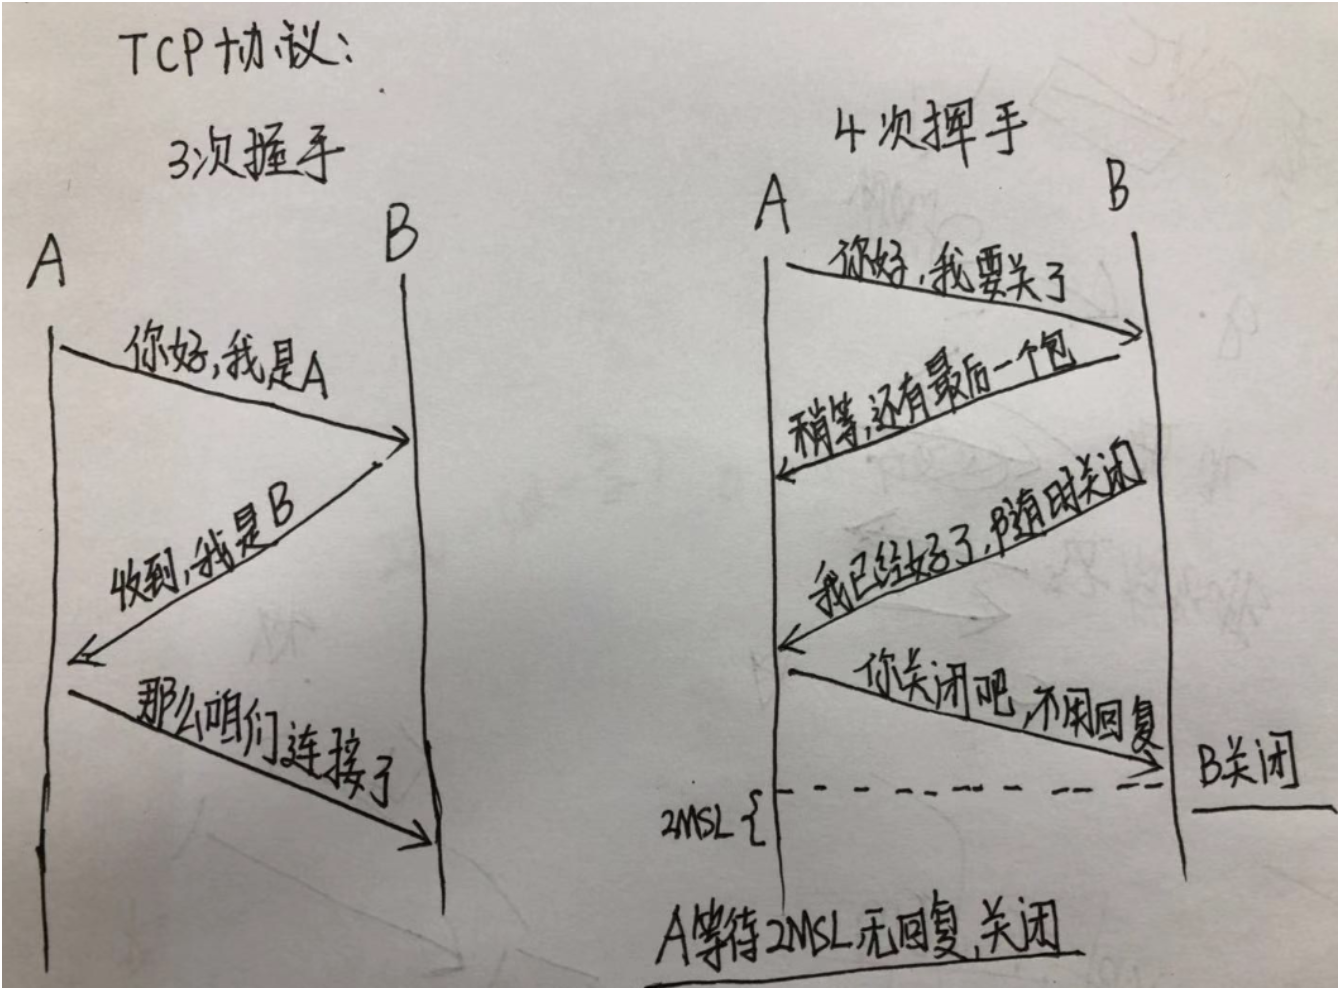 TCP协议:
3次握手
A
B
你好,我是A
收到,我是B
那么咱们连接了
4次挥手
A
B
你好,我要关了
稍等,还有最后一个包
我已经好了,随时关闭
你关闭吧,不用回复
B关闭
2MSL
A等待2MSL,无回复,关闭